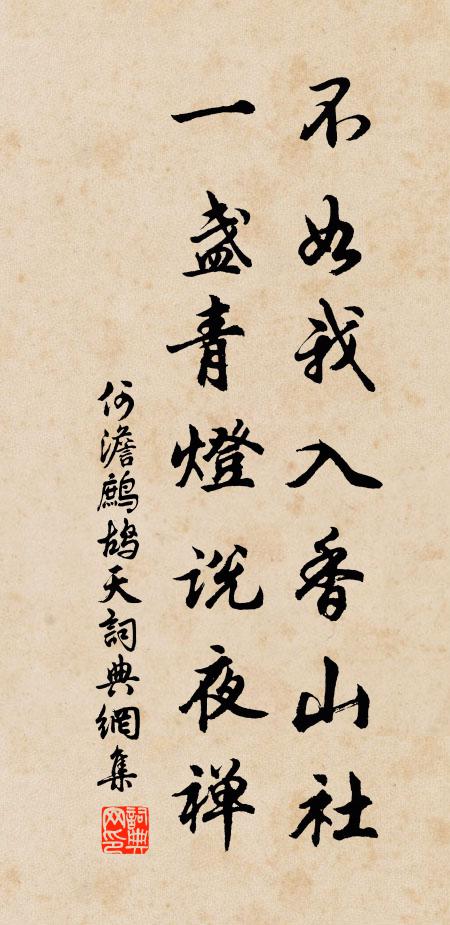 不如我入香山社
一盏青燈说夜禅
何澹鷓鴣天詞典網集
詞典网印